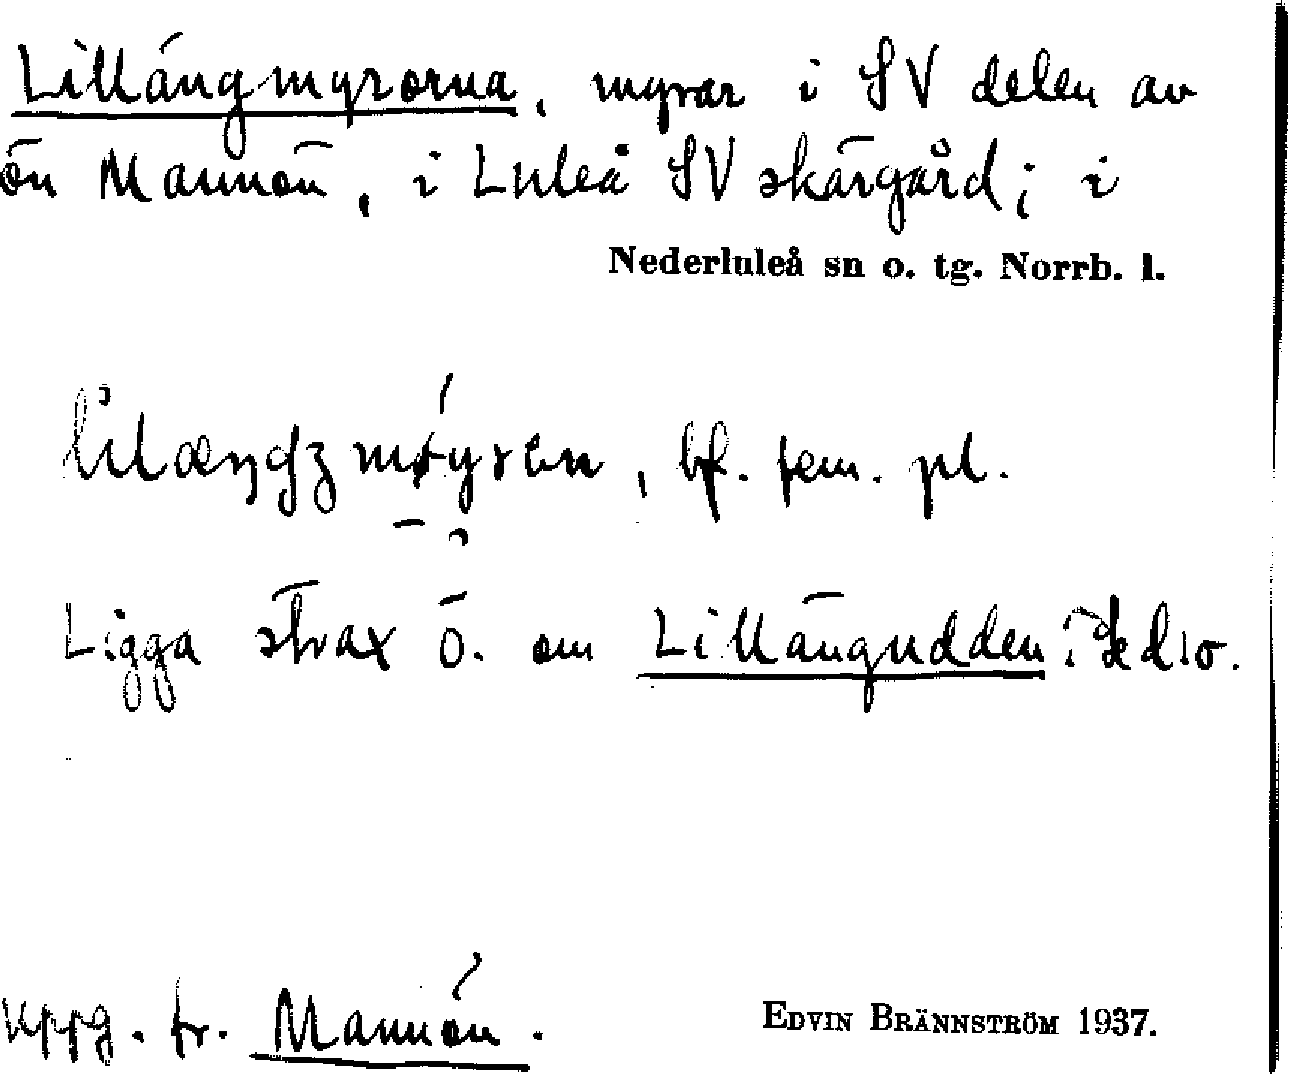 Lillängmyrorna, myrar i SV delen av
ön Mannön, i Luleå SV skärgård; i
Nederluleå sn o. tg. Norrb. l.
bf. fem. pl.
Ligga strax ö. om Lillängudden
Uppg. fr. Mannön.
EDVIN BRÄNNSTRÖM 1937.